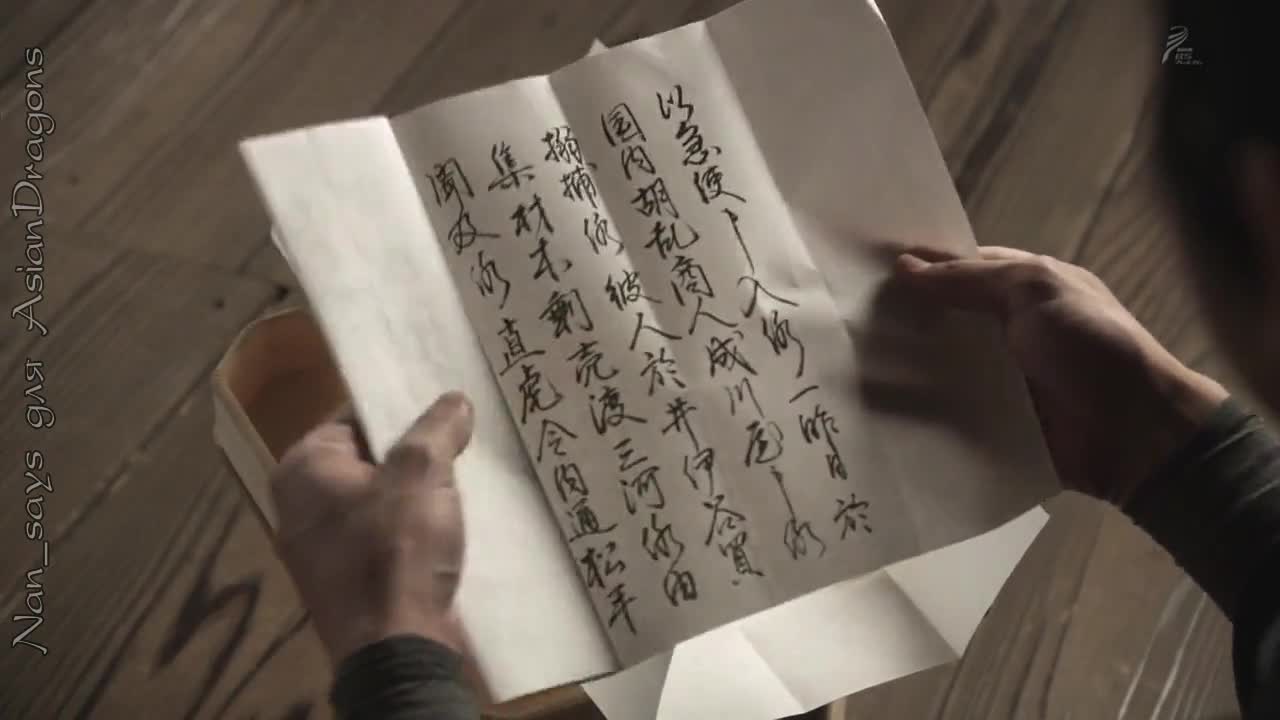 以急使申入候一昨日於
国内胡乱商人成川屋申候
搦捕候彼人於井伊谷買
集材木剰売渡三河候由
聞及候直虎令内通松平
Nan_says для AsianDragons
BS